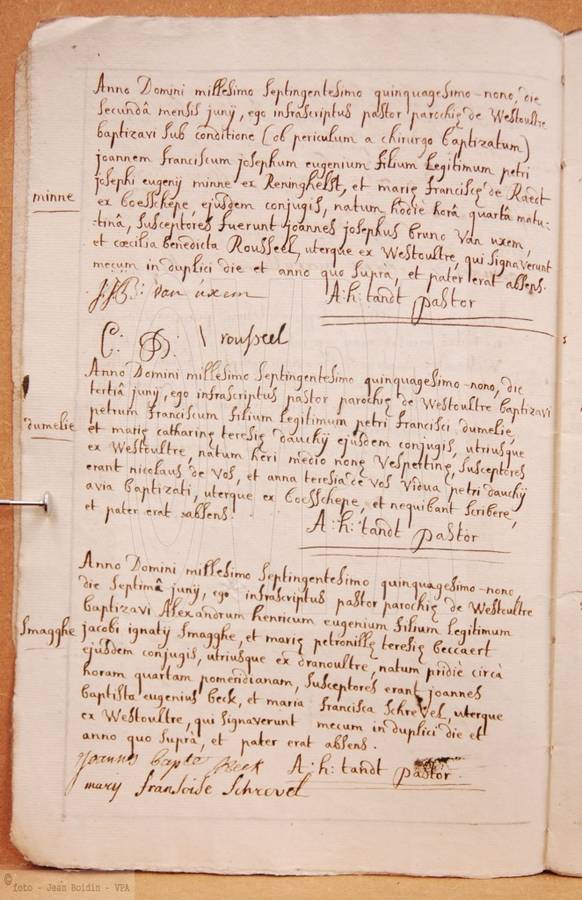 Anno Domini millesimo septingentesimo quinquagesimo-nono, die
secundâ mensis junij, ego infrascriptus pastor parochię de Westoultre
baptizavi sub conditione (ob periculum a chirurgo baptizatum)
joannem franciscum josephum eugenium filium legitimum petri
josephi eugenij minne ex Reninghelst, et marię franciscę de Raedt
minne
ex boesschepe ejusdem conjugis, natum hodie horâ quarta matu-
-tinâ, susceptores fuerunt joannes josephus bruno van uxem,
et cœcilia benedicta Rousseel, uterque ex Westoultre, qui signaverunt
mecum in duplici die et anno quo supra, et pater erat absens.
J:J:B: van uxem A:h: tandt pastor
C: B: rousseel
Anno Domini millesimo septingentesimo quinquagesimo-nono, die
tertiâ junij, ego infrascriptus pastor parochię de Westoultre baptizavi
petrum franciscum filium legitimum petri francisci dumelie,
dumelie
et marię catharinę teresię dauchij ejusdem conjugis, utriusque
ex Westoultre, natum heri medio nonę vespertinę, susceptores
erant nicolaus de vos, et anna teresia de vos vidua petri dauchij
avia baptizati, uterque ex boesschepe, et nequibant scribere,
et pater erat absens.
A:h: tandt pastor
Anno Domini millesimo septingentesimo quinquagesimo-nono,
die septimâ junij, ego infrascriptus pastor parochię de Westoultre
baptizavi Alexandrum henricum eugenium filium legitimum
Smagghe
jacobi ignatij smagghe, et marię petronillę teresię beccaert
ejusdem conjugis, utriusque ex dranoultre, natum pridie circà
horam quartam pomeridianam, susceptores erant joannes
baptista eugenius beck, et maria francisca schrevel, uterque
ex Westoultre, qui signaverunt mecum in duplici die et
anno quo suprà, et pater erat absens.
joannes bapte Beck A:h: tandt pastor
marij fransoise Schrevel
© foto - Jean Boidin - VPA